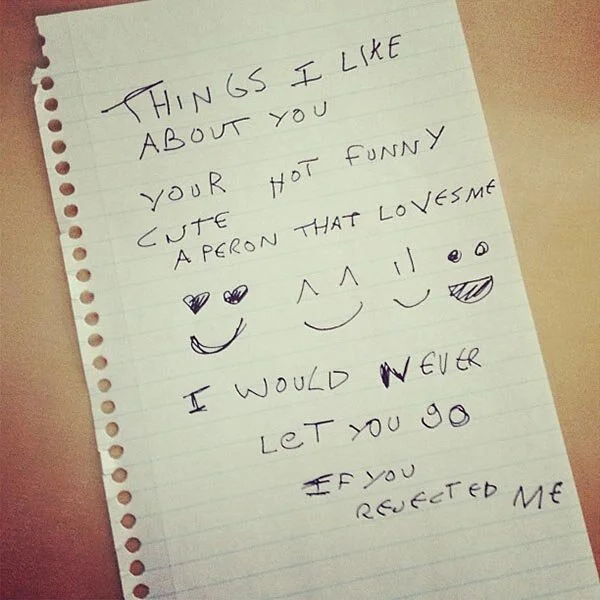 THINGS I LIKE
ABOUT YOU
YOUR HOT FUNNY
CUTE
A PERON THAT LOVES ME
I WOULD NEVER
LET YOU go
IF YOU
REJECTED ME